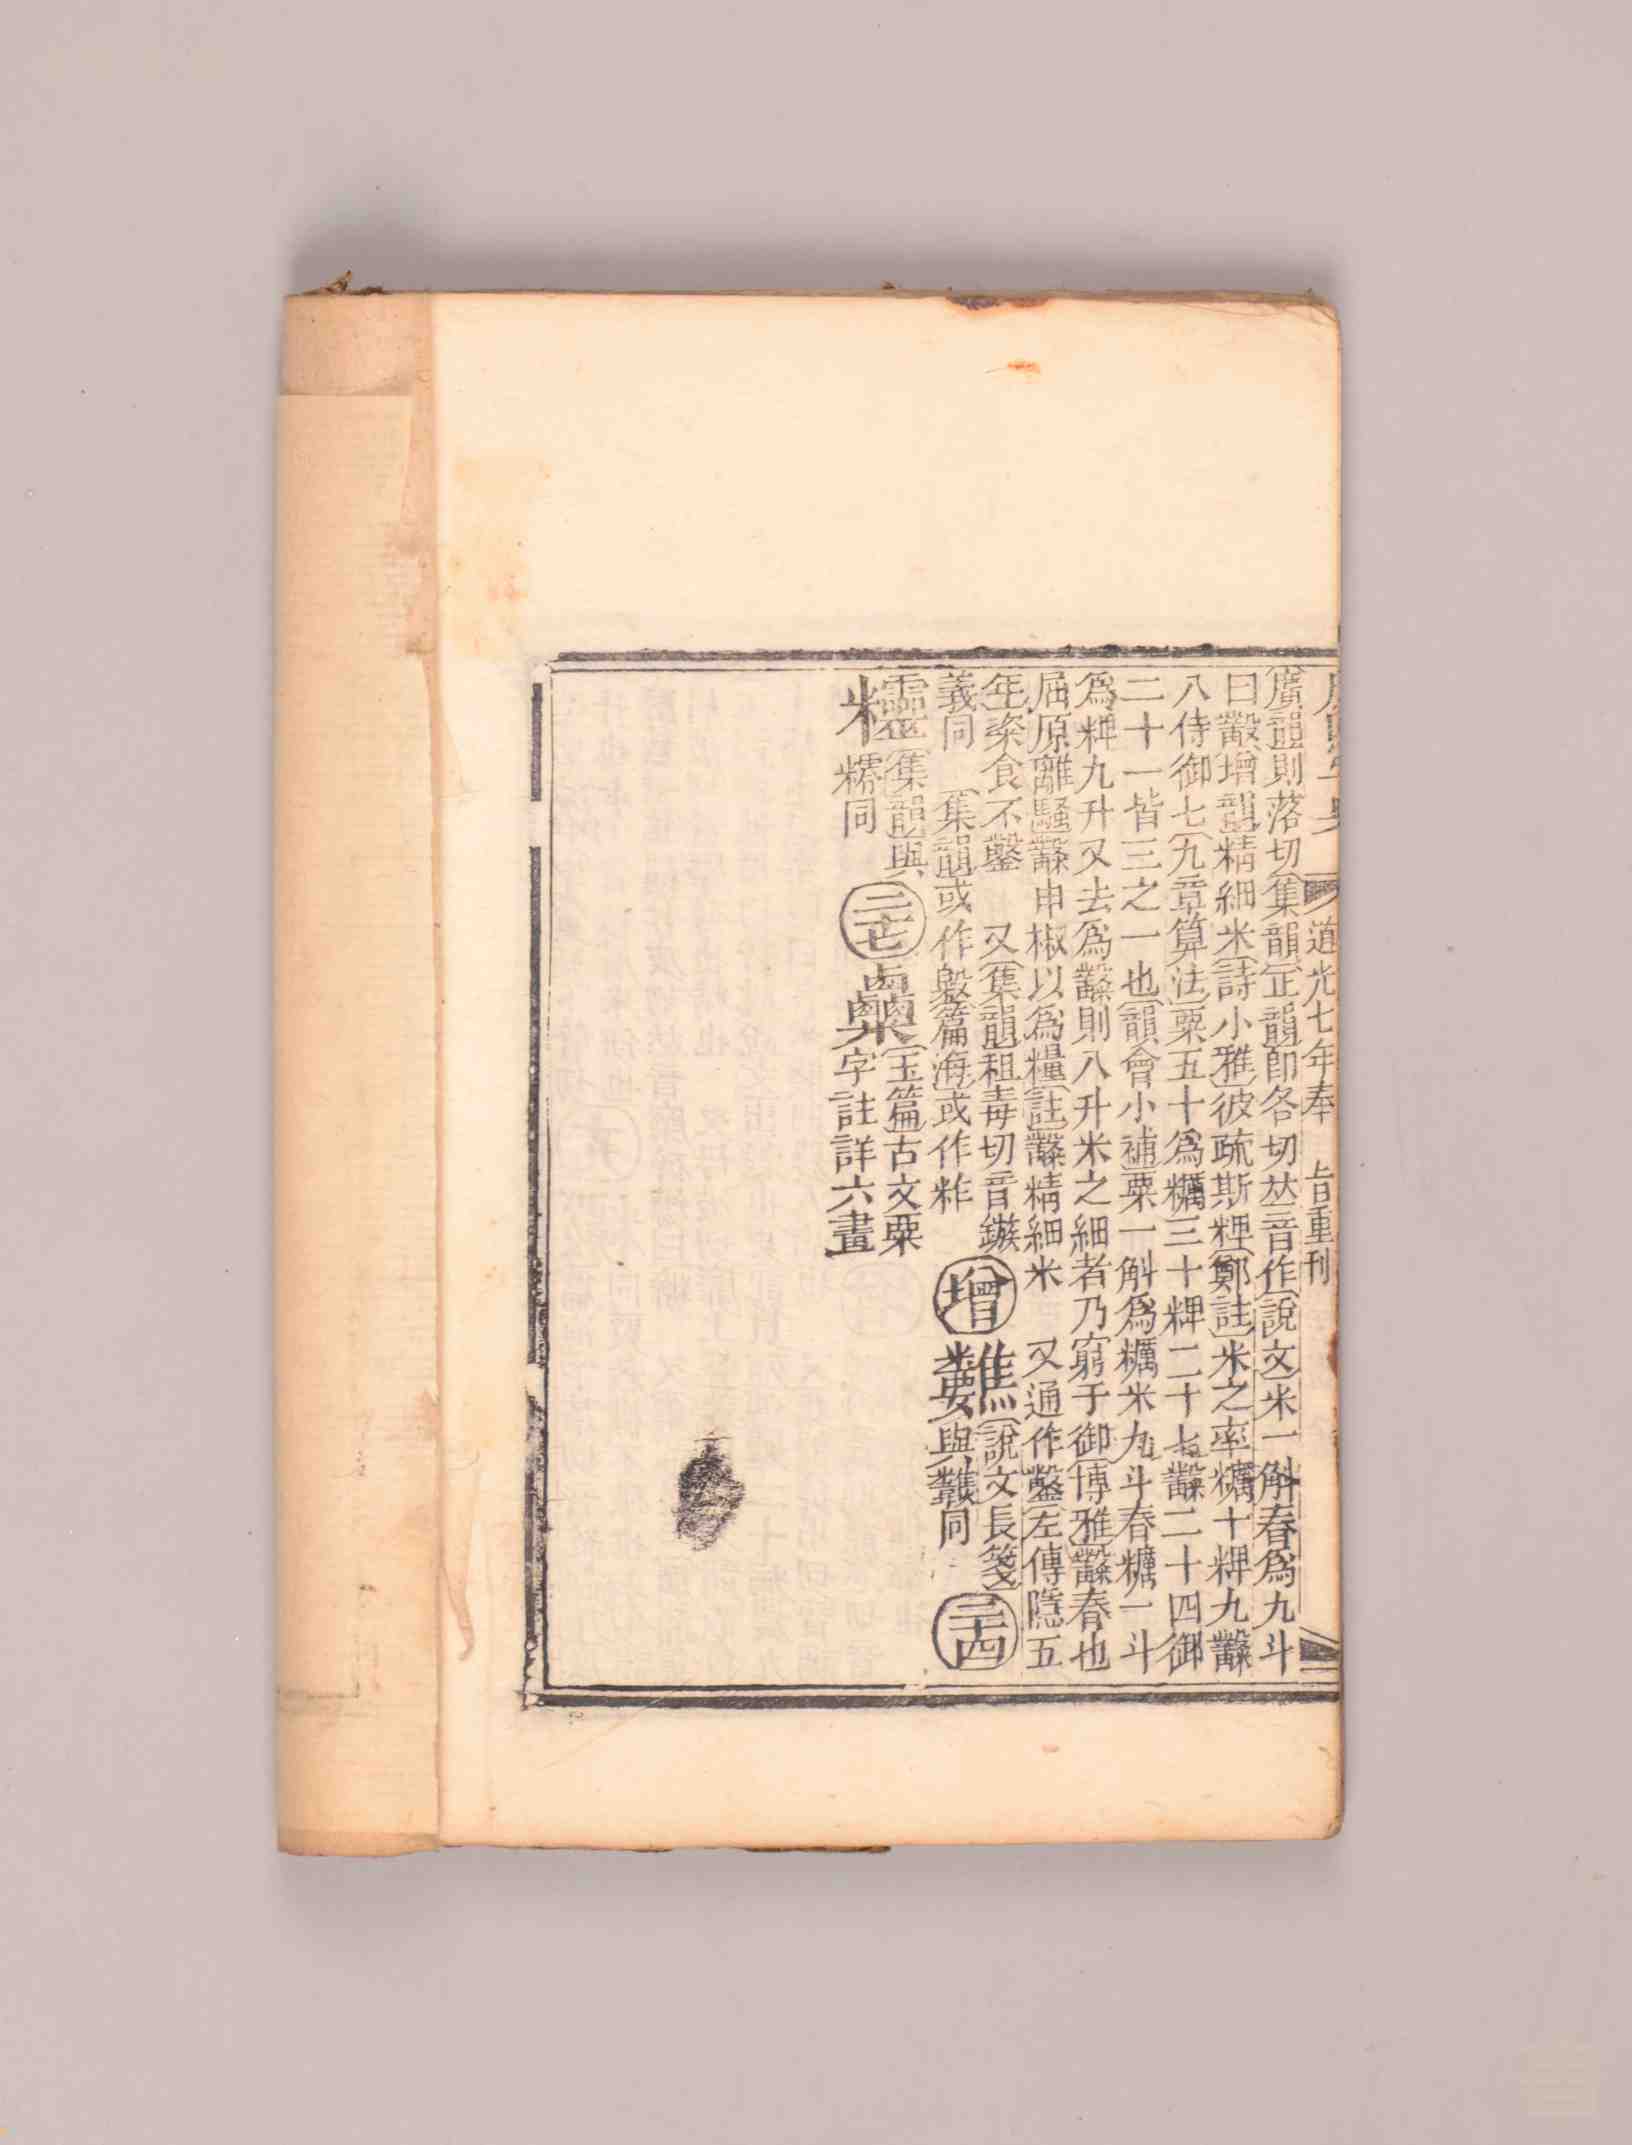 道光七年奉 旨重刊
廣韻則落切集韻正韻卽各切𠀤音作說文米一斛舂爲九斗
曰糳增韻精細米詩小雅彼疏斯粺鄭註米之率糲十粺九糳
八侍御七九章算法粟五十爲糲三十粺二十七糳二十四御
二十一皆三之一也韻會小補粟一斛爲糲米九斗舂糲一斗
爲粺九升又去爲糳則八升米之細者乃窮于御博雅糳舂也
屈原離騷糳申椒以爲糧註糳精細米 又通作鑿左傳隱五
年粢食不鑿 又集韻租毒切音鏃
義同 集韻或作毇篇海或作粨
增 說文長箋
與糶同
二十四
𩆜 集韻與
糯同
二十七
𥽿 玉篇古文粟
字註詳六畫